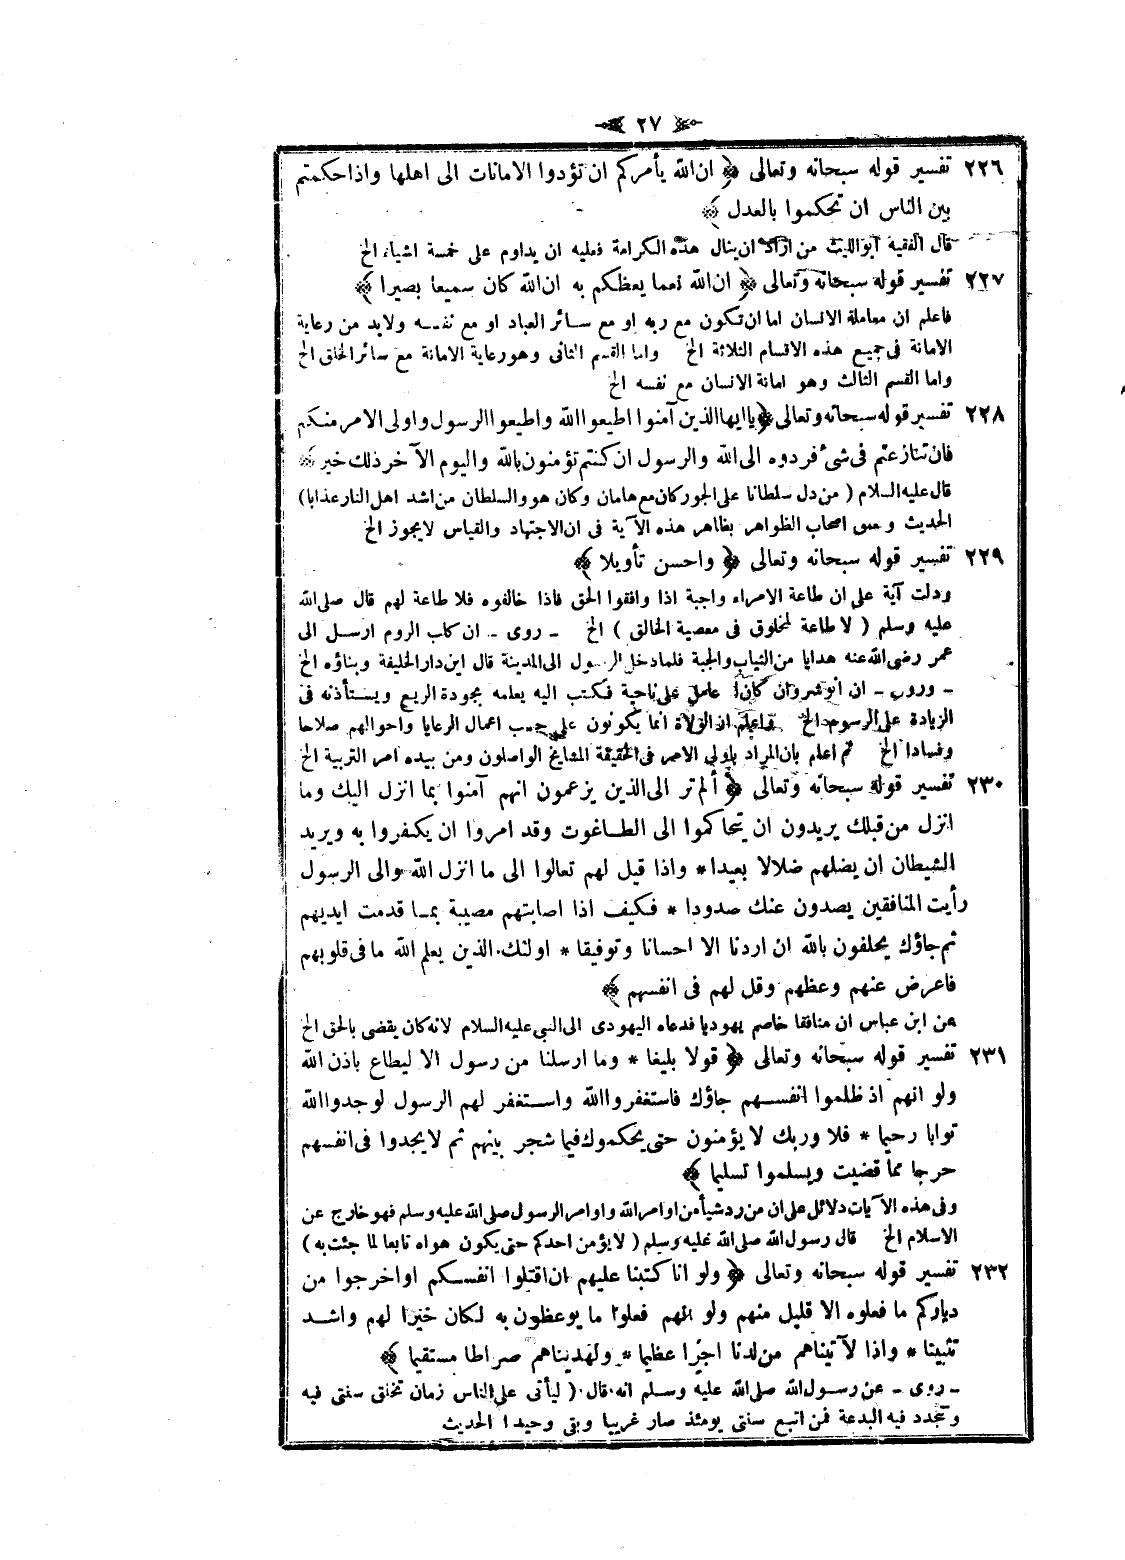 ٢٧
٢٢٦ تفسير قوله سبحانه وتعالى ﴿ ان الله يأمركم ان تؤدوا الامانات الى اهلها واذا حكمتم
بين الناس ان تحكموا بالعدل ﴾
قال الفقيه ابوالليث من اراد ان ينال هذه الكرامة فعليه ان يداوم على خمسة اشياء الخ
٢٢٧ تفسير قوله سبحانه وتعالى ﴿ ان الله نعما يعظكم به ان الله كان سميعا بصيرا ﴾
فاعلم ان معاملة الانسان اما ان تكون مع ربه او مع سائر العباد او مع نفسه ولابد من رعاية
الامانة فى جميع هذه الاقسام الثلاثة الخ واما القسم الثانى وهو رعاية الامانة مع سائر الخلق الخ
واما القسم الثالث وهو امانة الانسان مع نفسه الخ
٢٢٨ تفسير قوله سبحانه وتعالى ﴿ يا ايها الذين آمنوا اطيعوا الله واطيعوا الرسول واولى الامر منكم
فان تنازعتم فى شىء فردوه الى الله والرسول ان كنتم تؤمنون بالله واليوم الآخر ذلك خير ﴾
قال عليه السلام ( من دل سلطانا على الجور كان مع هامان وكان هو والسلطان من اشد اهل النار عذابا )
الحديث و اصحاب الظواهر بظاهر هذه الآية فى ان الاجتهاد والقياس لا يجوز الخ
٢٢٩ تفسير قوله سبحانه وتعالى ﴿ واحسن تأويلا ﴾
ودلت آية على ان طاعة الامراء واجبة اذا وافقوا الحق فاذا خالفوه فلا طاعة لهم قال صلى الله
عليه وسلم ( لا طاعة لمخلوق فى معصية الخالق ) الخ ـ روى ـ ان كاب الروم ارسل الى
عمر رضى الله عنه هدايا من الثياب والجبة فلما دخل الرسول الى المدينة قال اين دار الخليفة وبناؤه الخ
ـ وروى ـ ان انوشروان كان عامل على ناحية فكتب اليه يعلمه بجودة الريع ويستأذنه فى
الزيادة على الرسوم الخ فاعلم ان الولاة انما يكونون على حسب اعمال الرعايا واحوالهم صلاحا
وفسادا الخ ثم اعلم بان المراد باولى الامر فى الحقيقة المشايخ الواصلون ومن بيده امر التربية الخ
٢٣٠ تفسير قوله سبحانه وتعالى ﴿ ألم تر الى الذين يزعمون انهم آمنوا بما انزل اليك وما
انزل من قبلك يريدون ان يتحاكموا الى الطاغوت وقد امروا ان يكفروا به ويريد
الشيطان ان يضلهم ضلالا بعيدا * واذا قيل لهم تعالوا الى ما انزل الله والى الرسول
رأيت المنافقين يصدون عنك صدودا * فكيف اذا اصابتهم مصيبة بما قدمت ايديهم
ثم جاؤك يحلفون بالله ان اردنا الا احسانا وتوفيقا * اولئك الذين يعلم الله ما فى قلوبهم
فاعرض عنهم وعظهم وقل لهم فى انفسهم ﴾
عن ابن عباس ان منافقا خاصم يهوديا فدعاه اليهودى الى النبى عليه السلام لانه كان يقضى بالحق الخ
٢٣١ تفسير قوله سبحانه وتعالى ﴿ قولا بليغا * وما ارسلنا من رسول الا ليطاع باذن الله
ولو انهم اذ ظلموا انفسهم جاؤك فاستغفروا الله واستغفر لهم الرسول لوجدوا الله
توابا رحيما * فلا وربك لا يؤمنون حتى يحكموك فيما شجر بينهم ثم لا يجدوا فى انفسهم
حرجا مما قضيت ويسلموا تسليما ﴾
وفى هذه الآيات دلائل على ان من رد شيأ من اوامر الله واوامر الرسول صلى الله عليه وسلم فهو خارج عن
الاسلام الخ قال رسول الله صلى الله عليه وسلم ( لا يؤمن احدكم حتى يكون هواه تابعا لما جئت به )
٢٣٢ تفسير قوله سبحانه وتعالى ﴿ ولو انا كتبنا عليهم ان اقتلوا انفسكم او اخرجوا من
دياركم ما فعلوه الا قليل منهم ولو انهم فعلوا ما يوعظون به لكان خيرا لهم واشد
تثبيتا * واذا لآتيناهم من لدنا اجرا عظيما * ولهديناهم صراطا مستقيما ﴾
ـ روى ـ عن رسول الله صلى الله عليه وسلم انه قال ( ليأتى على الناس زمان تخلق سنتى فيه
وتجدد فيه البدعة فمن اتبع سنتى يومئذ صار غريبا وبقى وحيدا الحديث